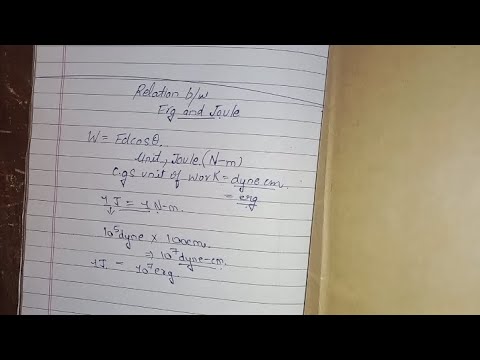 Relation b/w
Erg and Joule
W = Fdcosθ.
Unit, Joule (N-m)
C.g.s unit of work = dyne cm
= erg
1 J = 1 N-m.
↓
10⁵ dyne × 100cm.
⇒ 10⁷ dyne-cm.
1J. = 10⁷ erg.